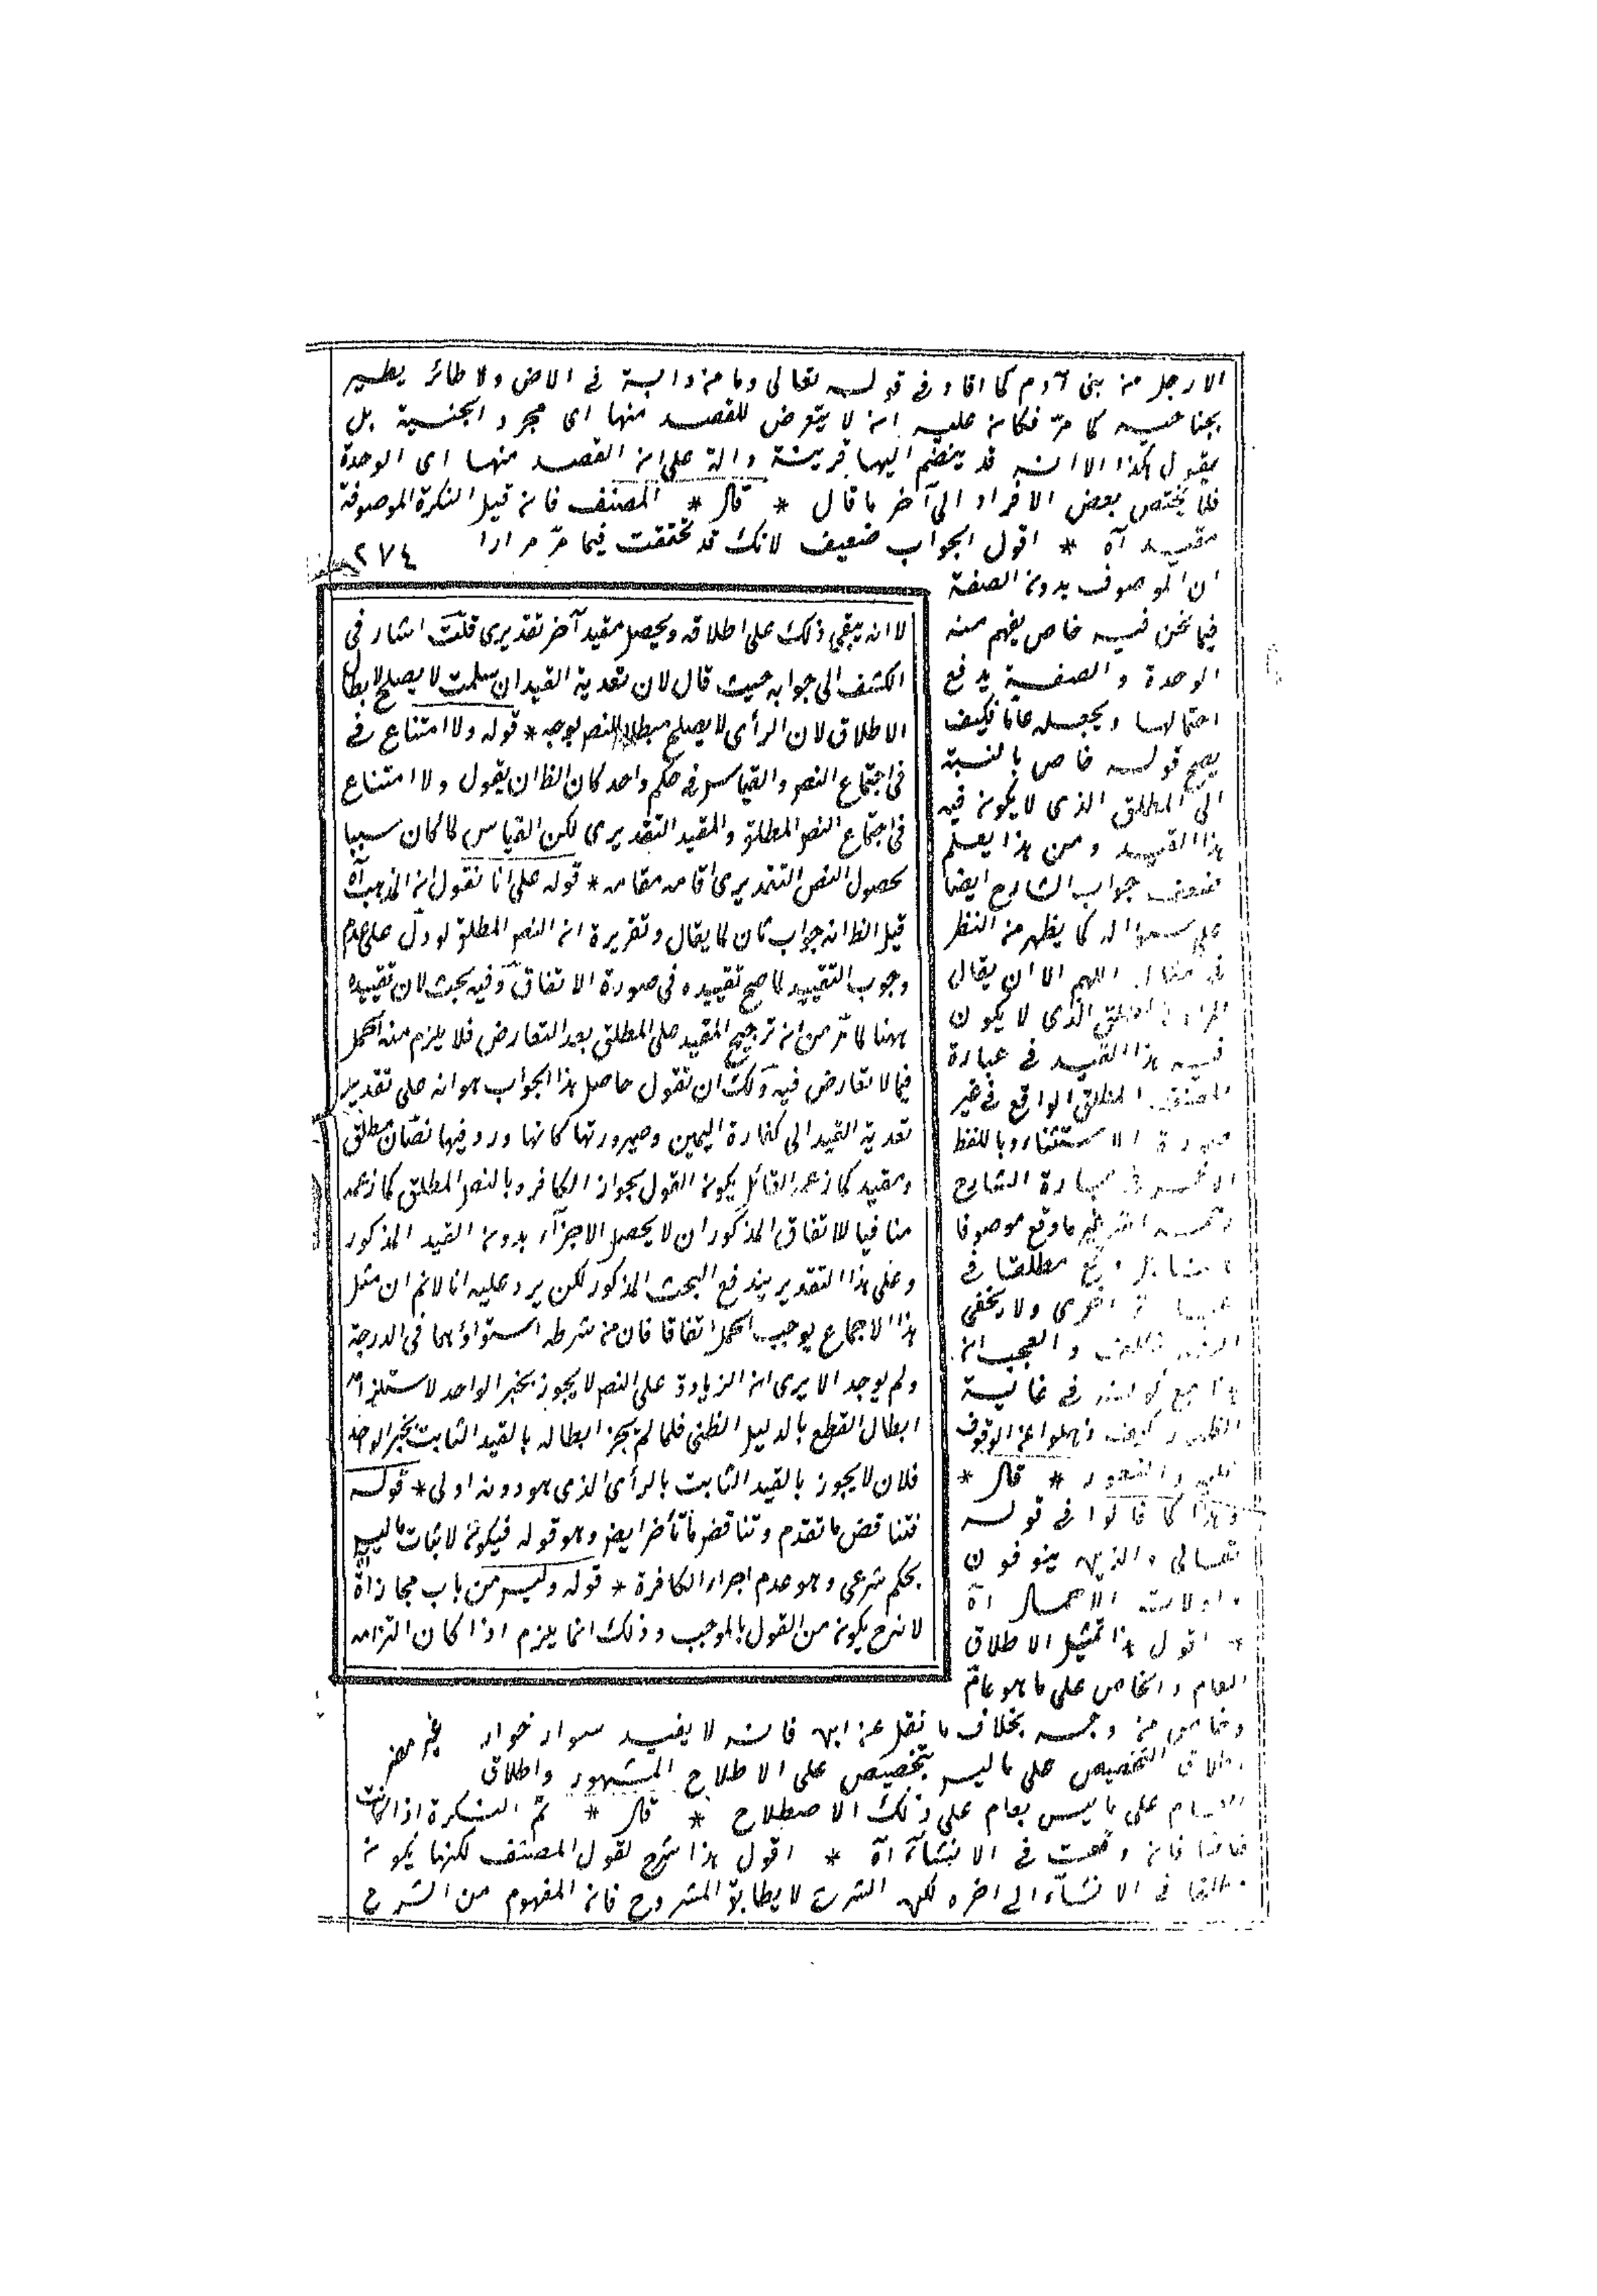 الا رجل من بنى آدم كما افاد فى قوله تعالى وما من دابة فى الارض ولا طائر يطير
بجناحيه كما مرّ فكانه عليه انه لا يتعرض للقصد منها اى مجرد الجنسية بل
يقول هكذا الا انه قد ينضم اليها قرينة دالة على ان القصد منها اى الوحدة
فلا يختص بعض الافراد الى آخر ما قال * قال * المصنف فان قيل النكرة الموصوفة
مقيد آه * اقول الجواب ضعيف لانك قد تحققت فيما مرّ مرارا
٢٧٤
ان الموصوف بدون الصفة
فيما نحن فيه خاص يفهم منه
الوحدة والصفة يدفع
احتمالها ويجعله عاما فكيف
يصح قوله خاص بالنسبة
الى المطلق الذى لا يكون فيه
هذا القيد ومن هذا يعلم
ضعف جواب الشارح ايضا
على سؤاله كما يظهر من النظر
فى اللهم الا ان يقال
المراد المطلق الذى لا يكون
فيه هذا القيد فى عبارة
المصنف المطلق الواقع فى غير
صورة الاستثناء وباللفظ
فى عبارة الشارح
ما وقع موصوفا
وقع مطلقا فى
اخرى ولا يخفى
والعجب ان
فى غاية
كيف ذهلوا عن الوقوف
عليه * قال *
وهذا كما قالوا فى قوله
تعالى والذين يتوفون
واولات الاحمال آه
* اقول هذا تمثيل الاطلاق
العام والخاص على ما هو عامّ
وخاص من وجه بخلاف ما نقل عن ابن فانه لا يفيد سوار خوار غير مضر
اطلاق التخصيص على ما ليس بتخصيص على الاطلاح المشهور واطلاق
العام على ما ليس بعام على ذلك الاصطلاح * قال * ثم النكرة اذا كانت
خاصا فان وقعت فى الانشآء آه * اقول هذا شرح لقول المصنف لكنها يكون
مطلقا فى الانشآء الى اخره لكن الشرح لا يطابق المشروح فان المفهوم من الشرح
لا انه يبقى ذلك على اطلاقه ويحصل مقيد آخر تقديرى قلت اشار فى
الكشف الى جوابه حيث قال لان تعدية القيد ان سلمت لا يصلح لابطال
الاطلاق لان الرأى لا يصلح مبطلا للنص بوجه * قوله ولا امتناع فى
فى اجتماع النص والقياس فى حكم واحد كان الظ ان يقول ولا امتناع
فى اجتماع النص المطلق والمقيد التقديرى لكن القياس لما كان سببا
بحصول النص التقديرى اقامه مقامه * قوله على انا نقول ان المذهب آه
قيل الظ انه جواب ثان لما يقال وتقريره ان النص المطلق لو دلّ على عدم
وجوب التقييد لما صح تقييده فى صورة الاتفاق وفيه بحث لان تقييده
ههنا لما مرّ من ان ترجيح المقيد على المطلق بعد التعارض فلا يلزم منه الحمل
فيما لا تعارض فيه ولك ان تقول حاصل هذا الجواب هو انه على تقدير
تعدية القيد الى كفارة اليمين وصيرورتها كانها ورد فيها نصّان مطلق
ومقيد كما زعم القائل يكون القول بجواز الكافر وبالنص المطلق كما زعمه
منافيا للاتفاق المذكور ان لا يحصل الاجزآء بدون القيد المذكور
وعلى هذا التقدير يندفع البحث المذكور لكن يرد عليه انا لا نم ان مثل
هذا الاجماع يوجب الحمل اتفاقا فان من شرطه استواؤهما فى الدرجة
ولم يوجد الا يرى ان الزيادة على النص لا يجوز بخبر الواحد لاستلزامه
ابطال القطع بالدليل الظنى فلما لم يجز ابطاله بالقيد الثابت بخبر الواحد
فلان لا يجوز بالقيد الثابت بالرأى الذى هو دونه اولى * قوله
فتناقض ما تقدم وتناقض ما تأخر ايض وهو قوله فيكون لاثبات ما ليس
بحكم شرعى وهو عدم اجراء الكافرة * قوله وليس من باب مجازاة
لانه ح يكون من القول بالموجب وذلك انما يلزم اذا كان التزامه